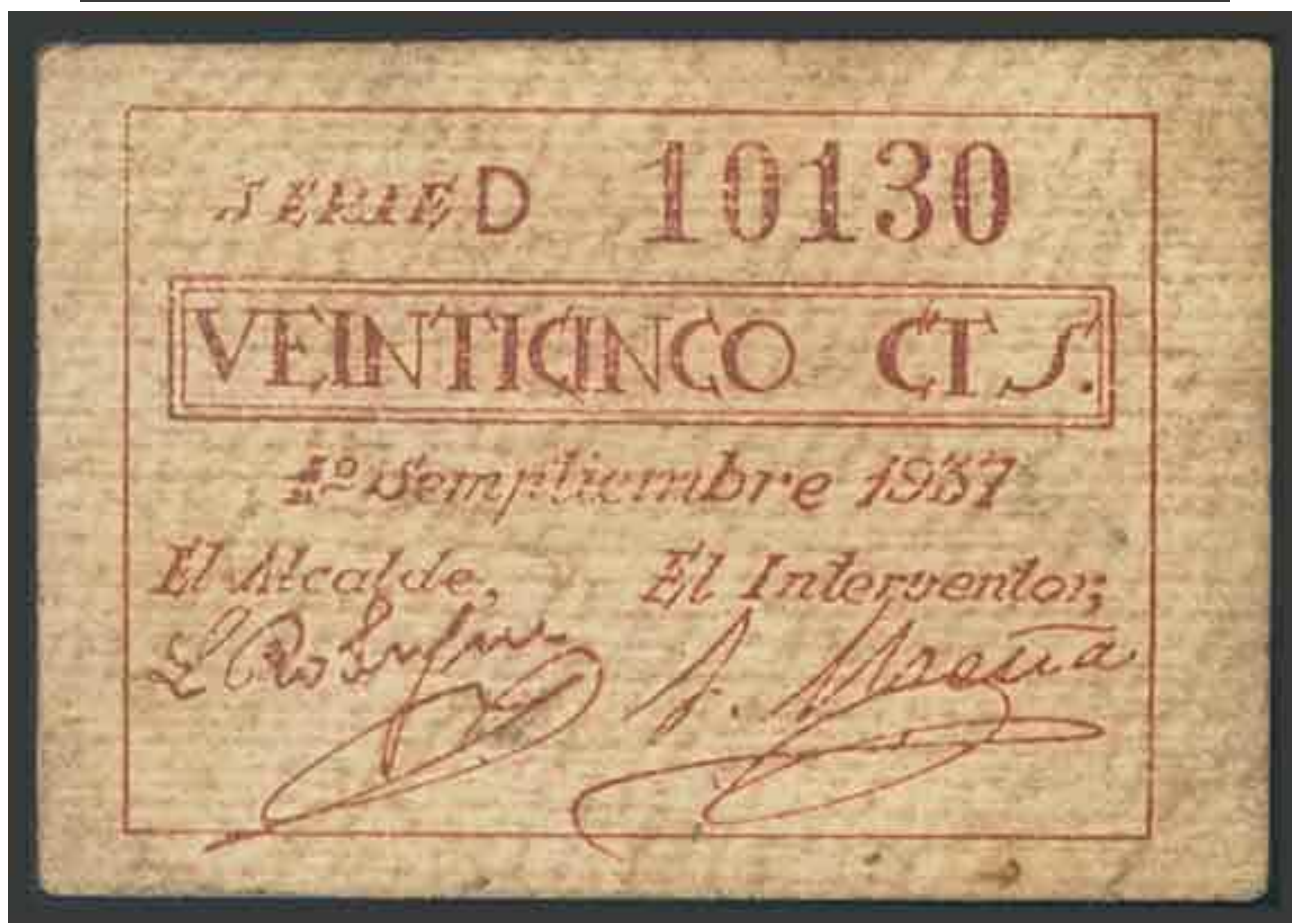 SERIE D 10130
VEINTICINCO CTS.
1º Semptiembre 1937
El Alcalde, El Interventor,